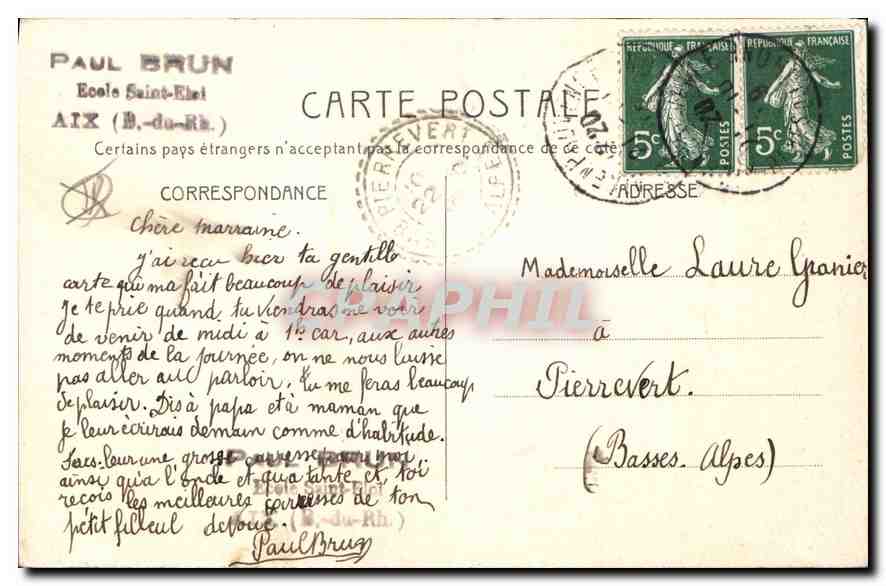 PAUL BRUN
Ecole Saint-Eloi
AIX (B.-du-Rh.)
CARTE POSTALE
Certains pays étrangers n'acceptant pas la correspondance de ce côté
CORRESPONDANCE
ADRESSE
RÉPUBLIQUE FRANÇAISE
5c POSTES
RÉPUBLIQUE FRANÇAISE
5c POSTES
PIERREVERT
22
Chère marraine.
J'ai reçu hier ta gentille
carte qui ma fait beaucoup de plaisir
Je te prie quand tu viendras me voir
de venir de midi à 1h car, aux autres
moments de la journée, on ne nous laisse
pas aller au parloir, tu me feras beaucoup
de plaisir. Dis à papa et à maman que
je leur écrirais demain comme d'habitude.
Fais-leur une grosse caresse pour moi,
ainsi qu'a l'oncle et qu'a tante et, toi
reçois les meilleures caresses de ton
petit filleul dévoué.
Paul Brun
PAUL BRUN
Ecole Saint-Eloi
AIX (B.-du-Rh.)
Mademoiselle Laure Granier
à
Pierrevert.
(Basses-Alpes)
CPAPHIL